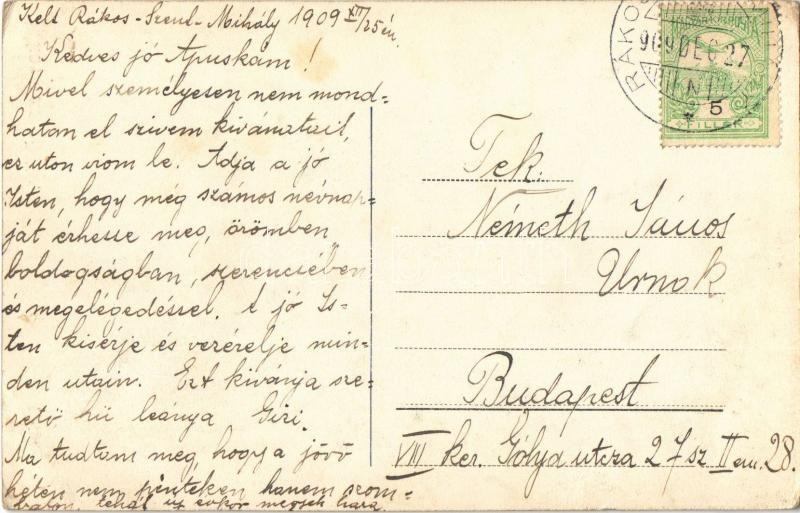 Kelt Rákos-Szent-Mihály 1909 XII/25 én.
Kedves jó Apuskám!
Mivel személyesen nem mond-
hatam el szivem kivánatait,
ez uton irom le. Adja a jó
Isten, hogy még számos névnap-
ját érhesse meg, örömben
boldogságban, szerencsében
és megelégedéssel. A jó Is-
ten kisérje és vezérelje min-
den utain. Ezt kivánja sze-
rető hű leánya Gizi.
Ma tudtam meg, hogy a jövő
héten nem pénteken hanem szom-
baton, tehát uj évkor megyek haza.
MAGYAR KIR. POSTA
RÁKOS
909 DEC 27
N
5
FILLÉR
Tek.
Németh János
Urnak
Budapest
VIII ker. Gólya utcza 27 sz II em. 28.